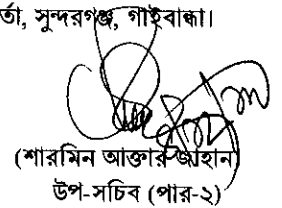 র্তা, সুন্দরগঞ্জ, গাইবান্ধা।
(শারমিন আক্তার জাহান)
উপ-সচিব (পার-২)